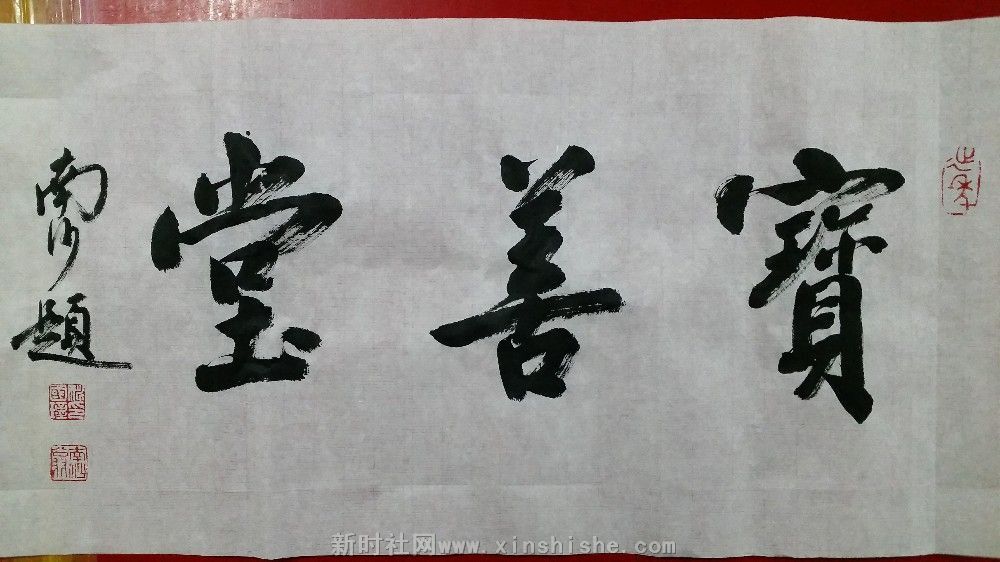 寶善堂
南沙題
新时社网www.xinshishe.com